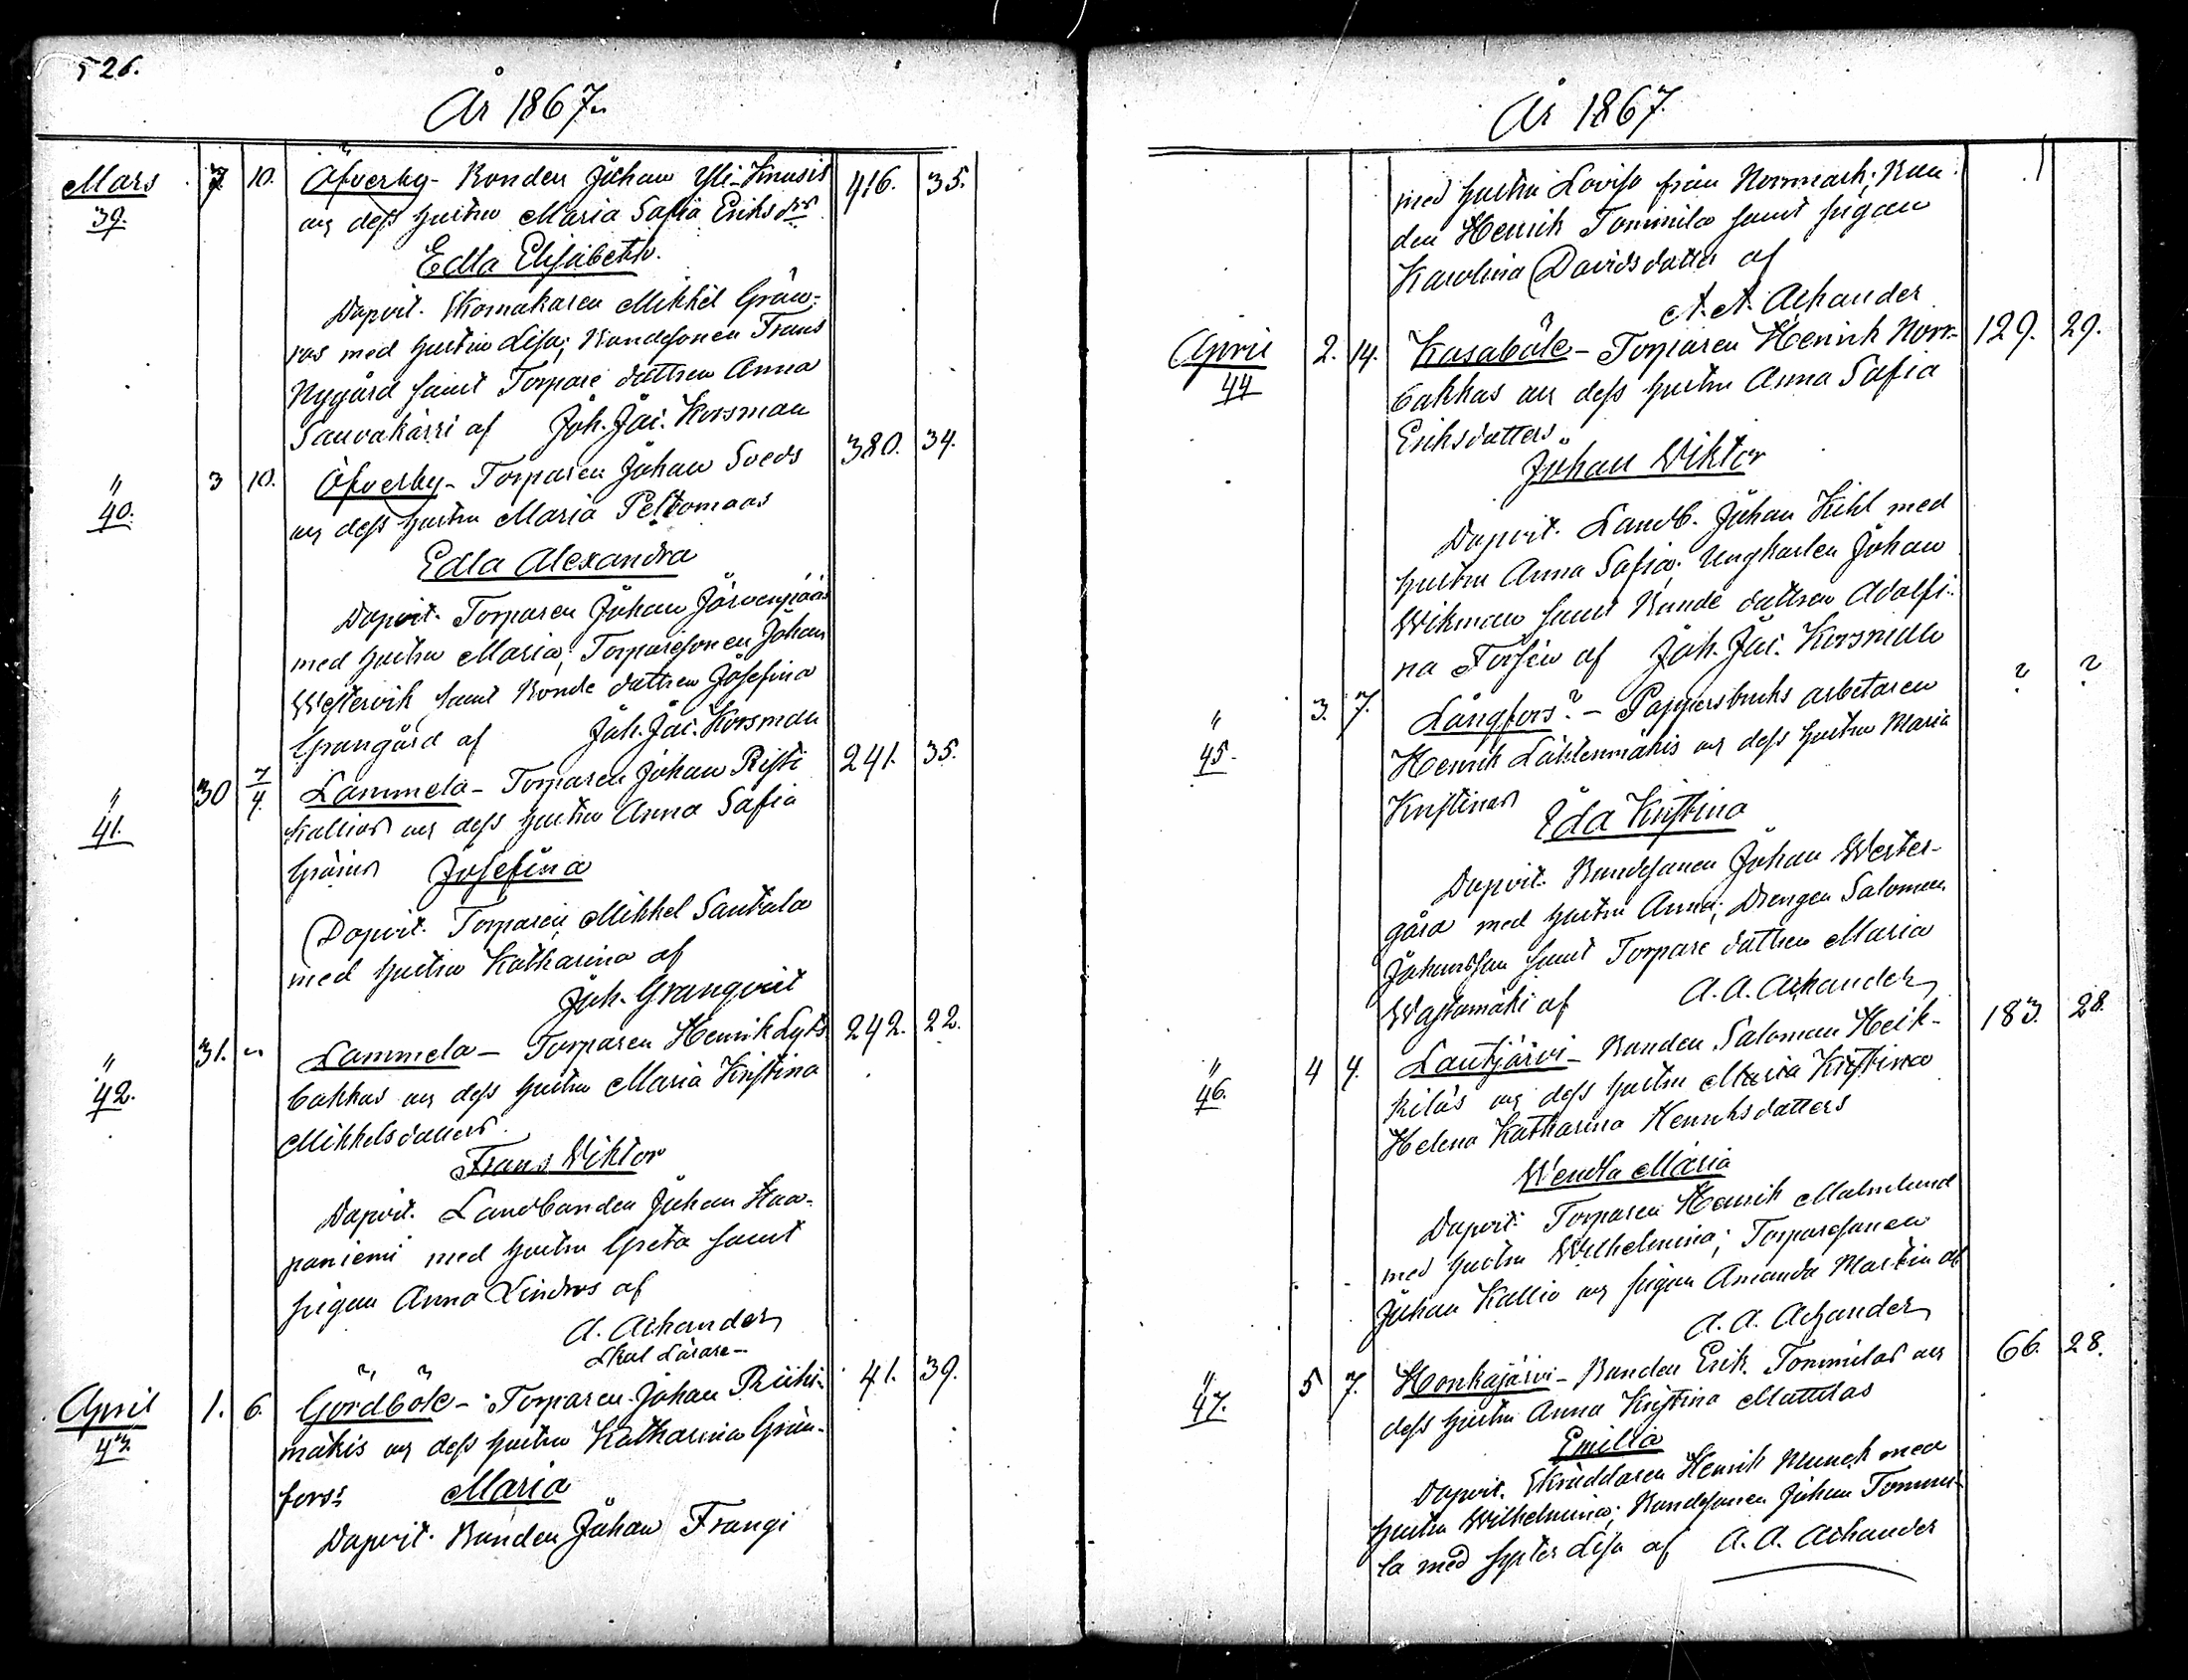 526.
År 1867.
Mars 7. 10. Öfverby - Bonden Johan Yli-Knusis 416. 35.
39. och dess hustru Maria Safia Eriksdrs
Edla Elisabeth.
Dopvit. Skomakaren Mikkel Grän-
ros med hustru Lisa; Bondesonen Frans
Nygård samt Torpare dottren Anna
Sauvakärri af Joh. Jac. Korsman
" 3 10. Öfverby - Torparen Johan Sveds 380. 34.
40. och dess hustru Maria Peltomaas
Edla Alexandra
Dopvit. Torparen Johan Järvenpääs
med hustru Maria, Torparesonen Johan
Westervik samt Bonde dottren Josefina
Grangård af Joh. Jac. Korsman
" 30 7/4. Lammela - Torparen Johan Risti 241. 35.
41. kallios och dess hustru Anna Safia
Josefina
Dopvit. Torparen Mikkel Santala
med hustru Katharina af
Joh. Granqvist
" 31. " Lammela - Torparen Henrik Lyts 242. 22.
42. bakkas och dess hustru Maria Kristina
Mikkelsdotters.
Frans Wiktor
Dopvit. Landbonden Johan Haa-
paniemi med hustru Greta samt
pigan Anna Lindros af
A. Achander
Skol Lärare
April 1. 6. Gördböle - Torparen Johan Riihi- 41. 39.
43. mäkis och dess hustru Katharina Grön-
fors: Maria
Dopvit. Bonden Johan Frangi
År 1867.
med hustru Lovisa från Norrmark; Bon-
den Henrik Tommila samt pigan
Karolina Davidsdotter af
A. A. Achander
April 2. 14. Kasaböle - Torparen Henrik Norr- 129. 29.
44 bakkas och dess hustru Anna Safia
Eriksdotters
Johan Wiktor
Dopvit. Landb. Johan Kihl med
hustru Anna Safia; Ungkarlen Johan
Wikman samt Bonde dottren Adolfi-
na Forsén af Joh. Jac. Korsman
" 3. 7. Långfors? - Pappersbruks arbetaren ? ?
45. Henrik Lähtenmäkis och dess hustru Maria
Kristinas Eda Kristina
Dopvit. Bondesonen Johan Wester-
gård med hustru Anna; Drengen Salomon
Johansson samt Torpare dottren Maria
Wastamäki af A. A. Achander
" 4 4. Lautjärvi - Bonden Salomon Heik- 183. 28.
46. kiläs och dess hustru Maria Kristina
Helena Katharina Henriksdotters
Wendla Maria
Dopvit. Torparen Henrik Malmlund
med hustru Wilhelmina; Torparesonen
Johan Kallio och pigan Amanda Martin af
A. A. Achander
" 5 7. Honkajärvi - Bonden Erik Tommilas och 66. 28.
47. dess hustru Anna Kristina Mattilas
Emilia
Dopvit. Skräddaren Henrik Munck med
hustru Wilhelmina; Bondesonen Johan Tommi-
la med syster Lisa af A. A. Achander